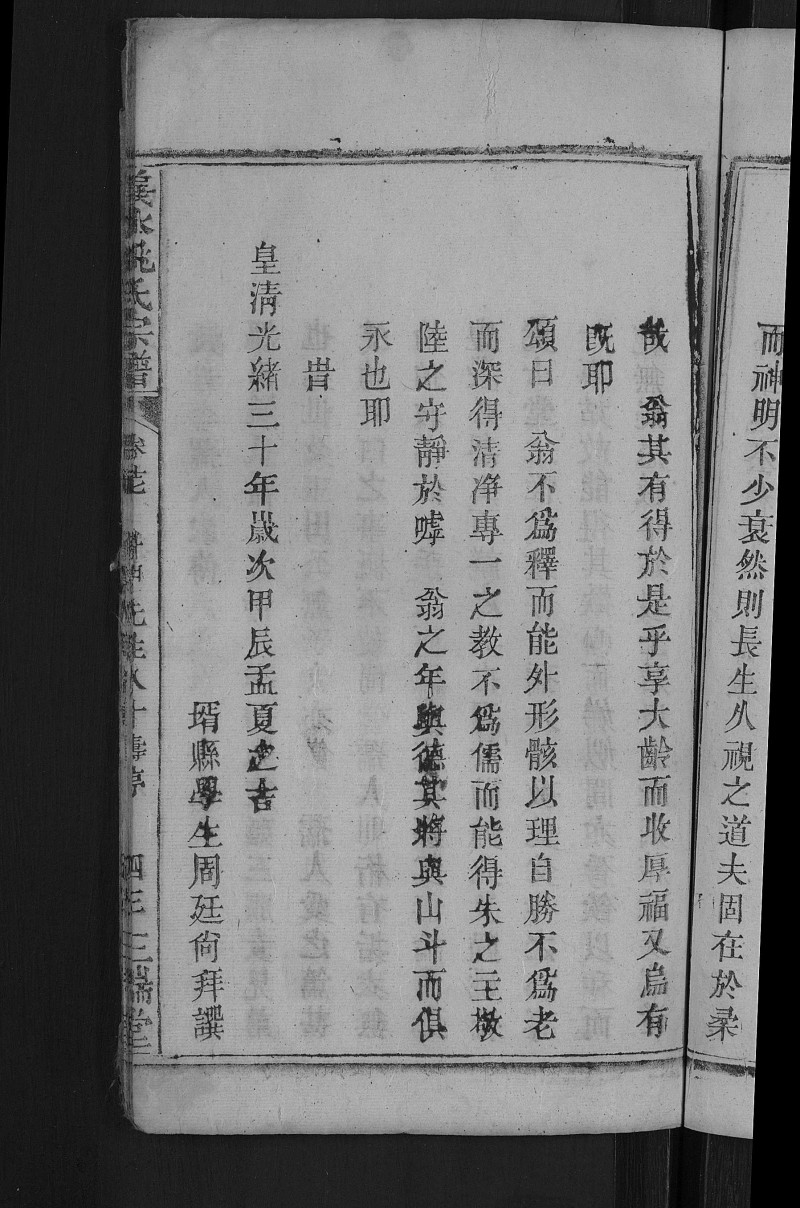 而神明不少衰然則長生久視之道夫固在於彔
哉　翁其有得於是乎享大齡而收厚福又烏有
旣耶
頌曰　翁不爲釋而能外形骸以理自勝不爲老
而深得淸净專一之教不爲儒而能得朱之主敬
陸之守靜於嘑　翁之年與德其將與山斗而俱
永也耶
旹
皇淸光緒三十年歲次甲辰孟夏之吉
壻縣學生周廷尙拜譔
姚氏宗譜
先生八十壽序
三瑞堂